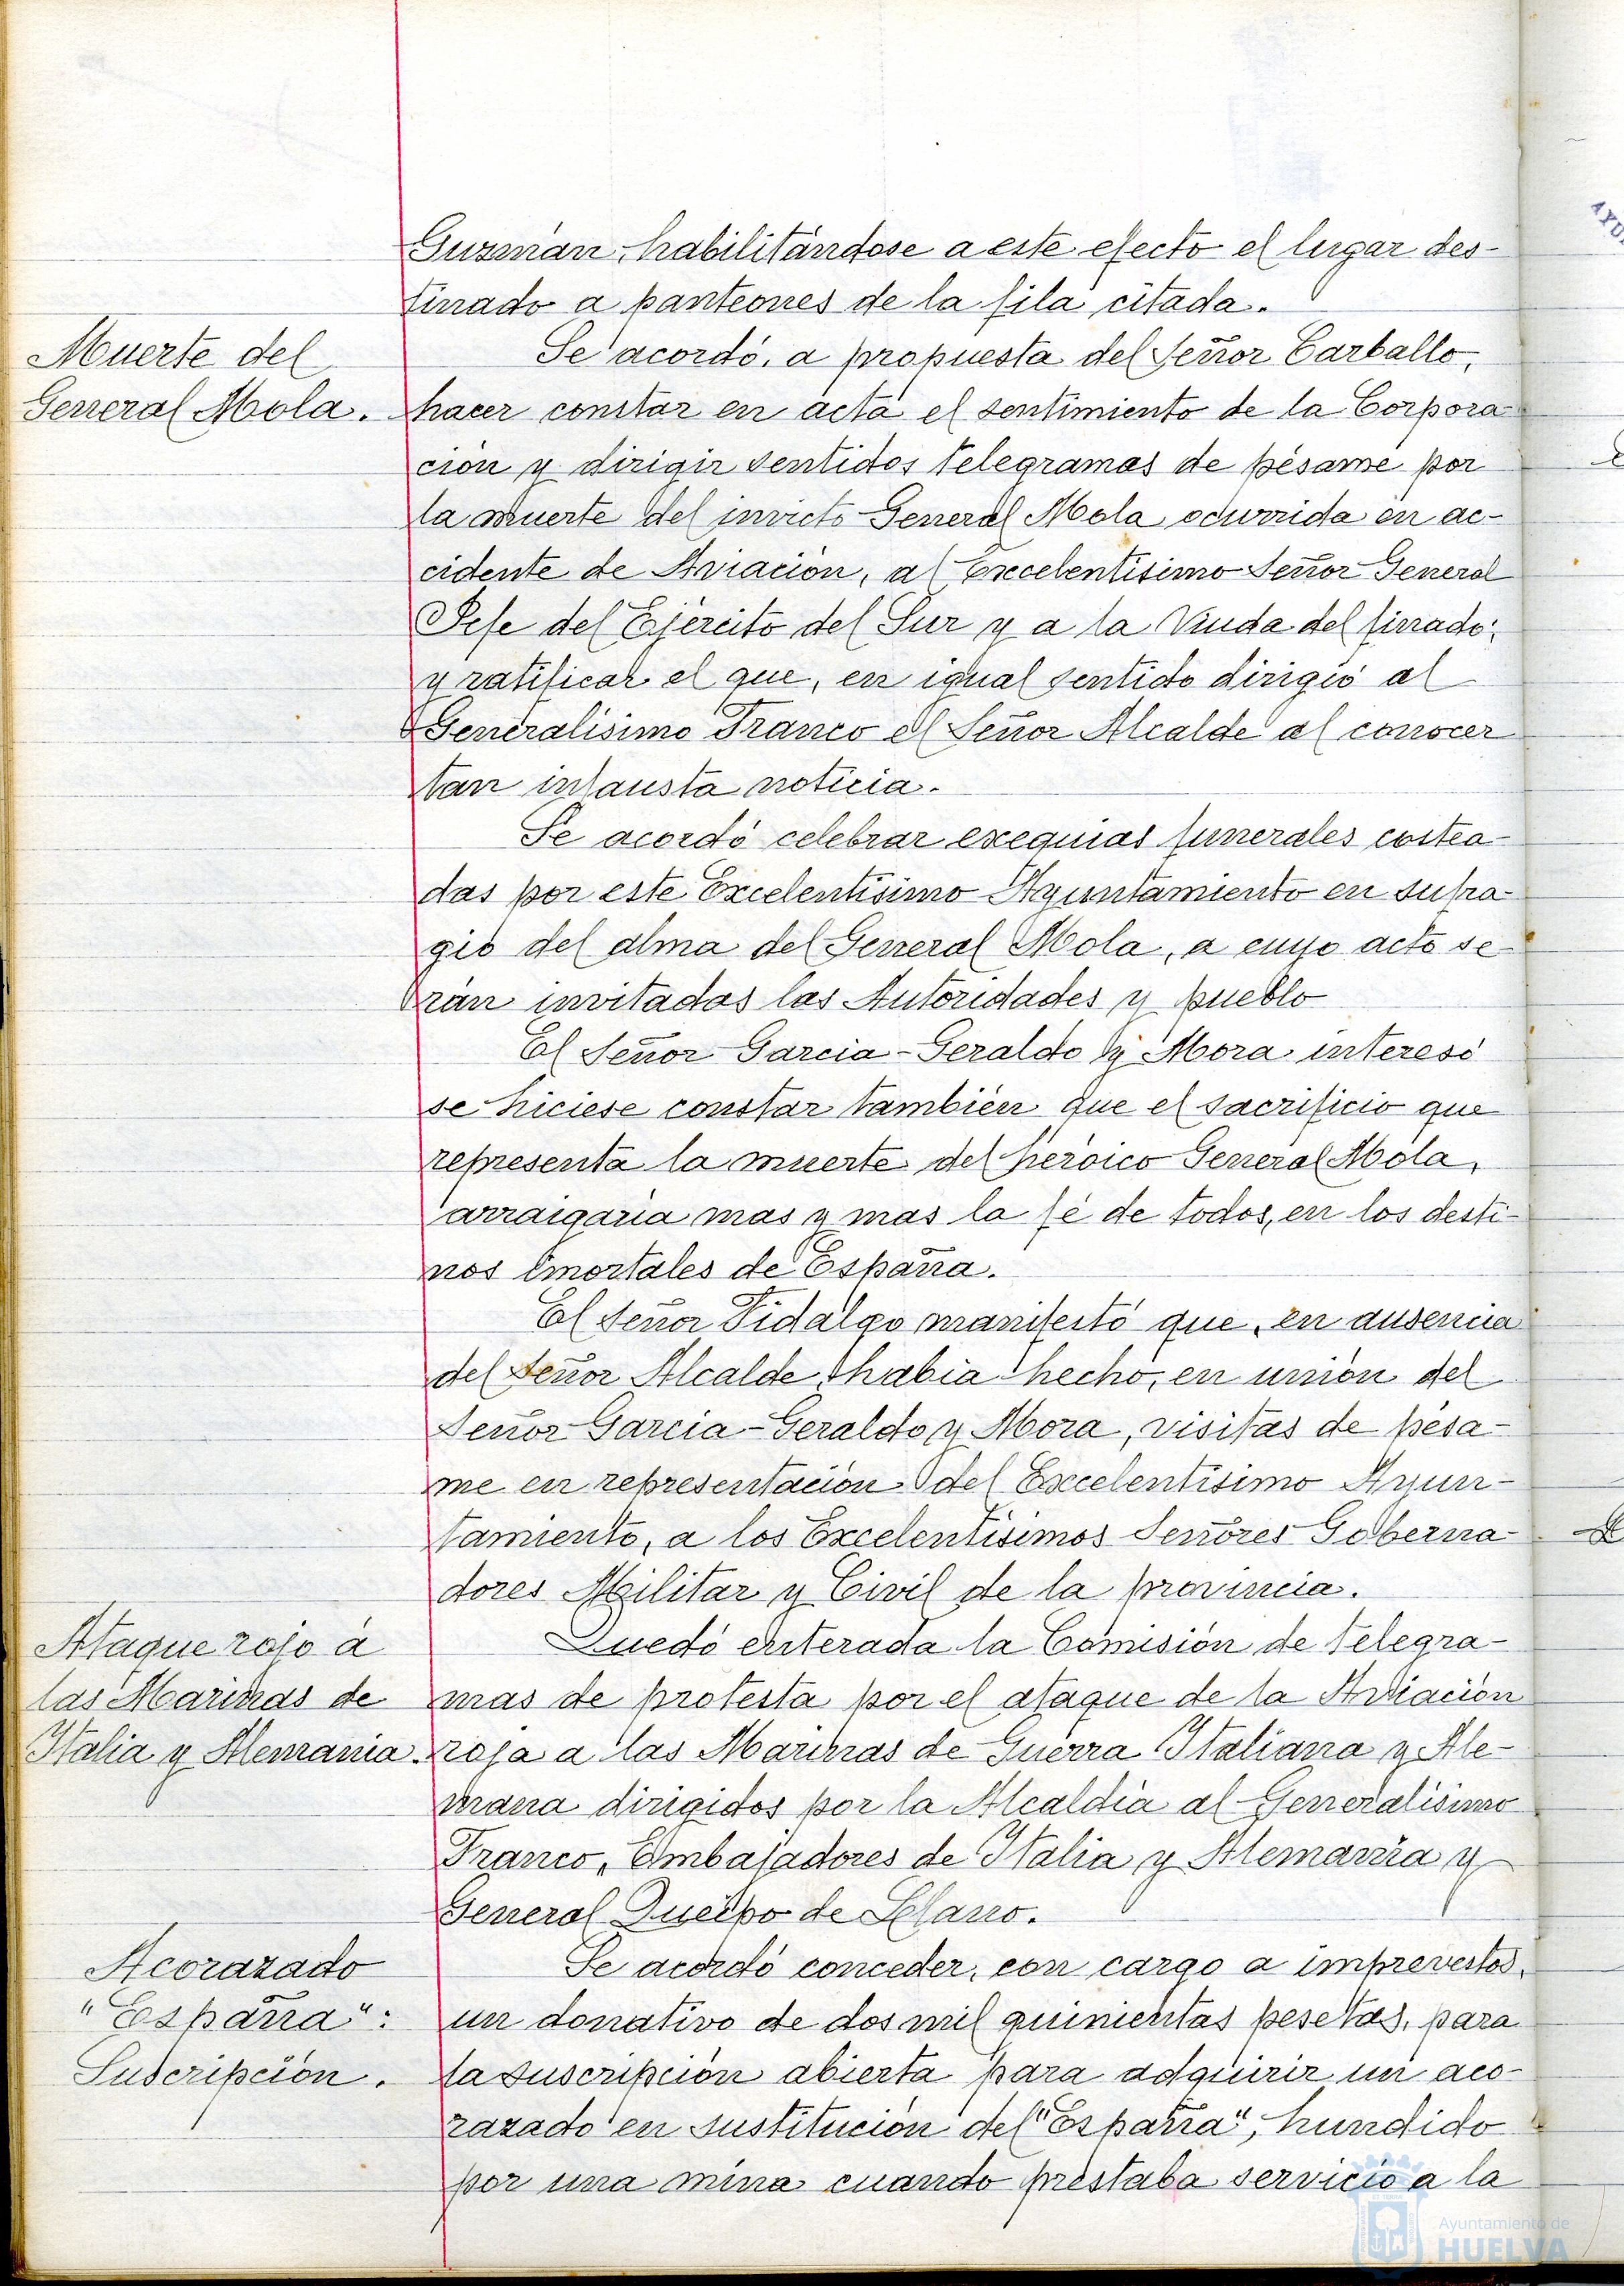 Guzmán, habilitándose a este efecto el lugar des-
tinado a panteones de la fila citada.
Muerte del
General Mola.
Se acordó, a propuesta del Señor Carballo,
hacer constar en acta el sentimiento de la Corpora-
ción y dirigir sentidos telegramas de pésame por
la muerte del invicto General Mola ocurrida en ac-
cidente de Aviación, al Excelentísimo Señor General
Jefe del Ejército del Sur y a la Viuda del finado;
y ratificar el que, en igual sentido dirigió al
Generalísimo Franco el Señor Alcalde al conocer
tan infausta noticia.
Se acordó celebrar exequias funerales costea-
das por este Excelentísimo Ayuntamiento en sufra-
gio del alma del General Mola, a cuyo acto se-
rán invitadas las Autoridades y pueblo
El Señor Garcia-Geraldo y Mora interesó
se hiciese constar también que el sacrificio que
representa la muerte del heróico General Mola,
arraigaría mas y mas la fé de todos, en los desti-
nos imortales de España.
El Señor Fidalgo manifestó que, en ausencia
del Señor Alcalde, habia hecho, en unión del
Señor Garcia-Geraldo y Mora, visitas de pésa-
me en representación del Excelentísimo Ayun-
tamiento, a los Excelentísimos Señores Goberna-
dores Militar y Civil de la provincia.
Ataque rojo a
las Marinas de
Italia y Alemania.
Quedó enterada la Comisión de telegra-
mas de protesta por el ataque de la Aviación
roja a las Marinas de Guerra Italiana y Ale-
mana dirigidos por la Alcaldía al Generalísimo
Franco, Embajadores de Italia y Alemania y
General Queipo de Llano.
Acorazado
"España":
Suscripción.
Se acordó conceder, con cargo a imprevistos,
un donativo de dos mil quinientas pesetas, para
la suscripción abierta para adquirir un aco-
razado en sustitución del "España", hundido
por una mina cuando prestaba servicio a la
Ayuntamiento de
HUELVA